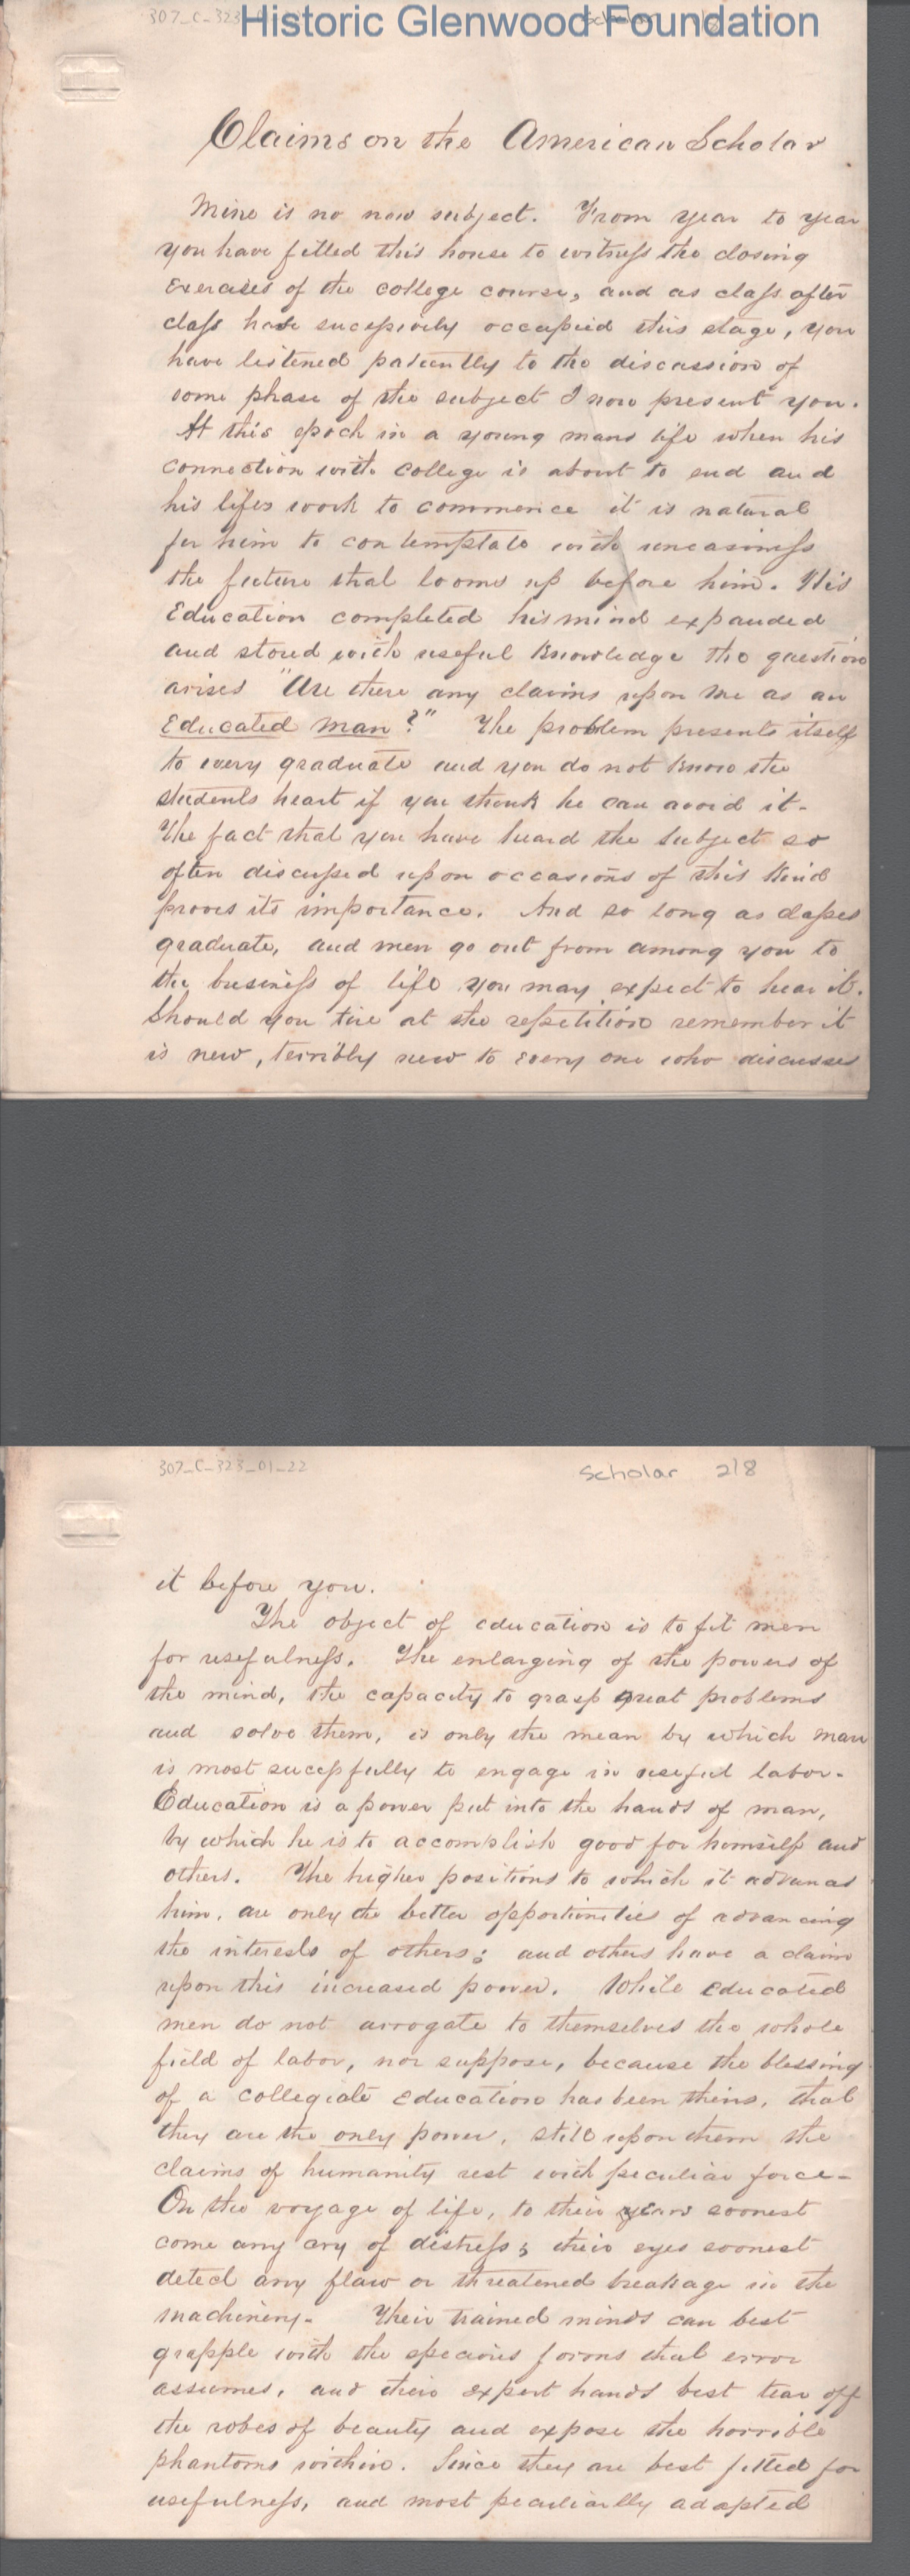 Historic Glenwood Foundation
307_C_323
Scholar
Claims on the American Scholar
Mine is no new subject. From year to year
you have filled this house to witness the closing
Exercises of the college course, and as class after
class have sucessively occupied this stage, you
have listened patiently to the discussion of
some phase of the subject I now present you.
At this epoch in a young mans life when his
connection with college is about to end and
his lifes work to commence it is natural
for him to contemplate with uneasiness
the future that looms up before him. His
Education completed his mind expanded
and stored with useful knowledge the question
arises "Are there any claims upon me as an
Educated man?" The problem presents itself
to every graduate and you do not know the
students heart if you think he can avoid it-
The fact that you have heard the subject so
often discussed upon occasions of this kind
proves its importance. And so long as classes
graduate, and men go out from among you to
the business of life you may expect to hear it.
Should you tire at the repetition remember it
is new, terribly new to every one who discusses
307_C-323_01_22
Scholar 2/8
it before you.
The object of education is to fit men
for usefulness. The enlarging of the powers of
the mind, the capacity to grasp great problems
and solve them, is only the mean by which man
is most sucessfully to engage in useful labor-
Education is a power put into the hands of man,
by which he is to accomplish good for himself and
others. The higher positions to which it advances
him, are only the better opportunities of advancing
the interests of others; and others have a claim
upon this increased power. While Educated
men do not arrogate to themselves the whole
field of labor, nor suppose, because the blessing
of a collegiate Education has been theirs, that
they are the only power, still upon them the
claims of humanity rest with peculiar force-
On the voyage of life, to their years soonest
come any cry of distress; their eyes soonest
detect any flaw or threatened breakage in the
machinery- Their trained minds can best
grapple with the specious forms that error
assumes, and their expert hands best tear off
the robes of beauty and expose the horrible
phantoms within. Since they are best fitted for
usefulness, and most peculiarly adapted